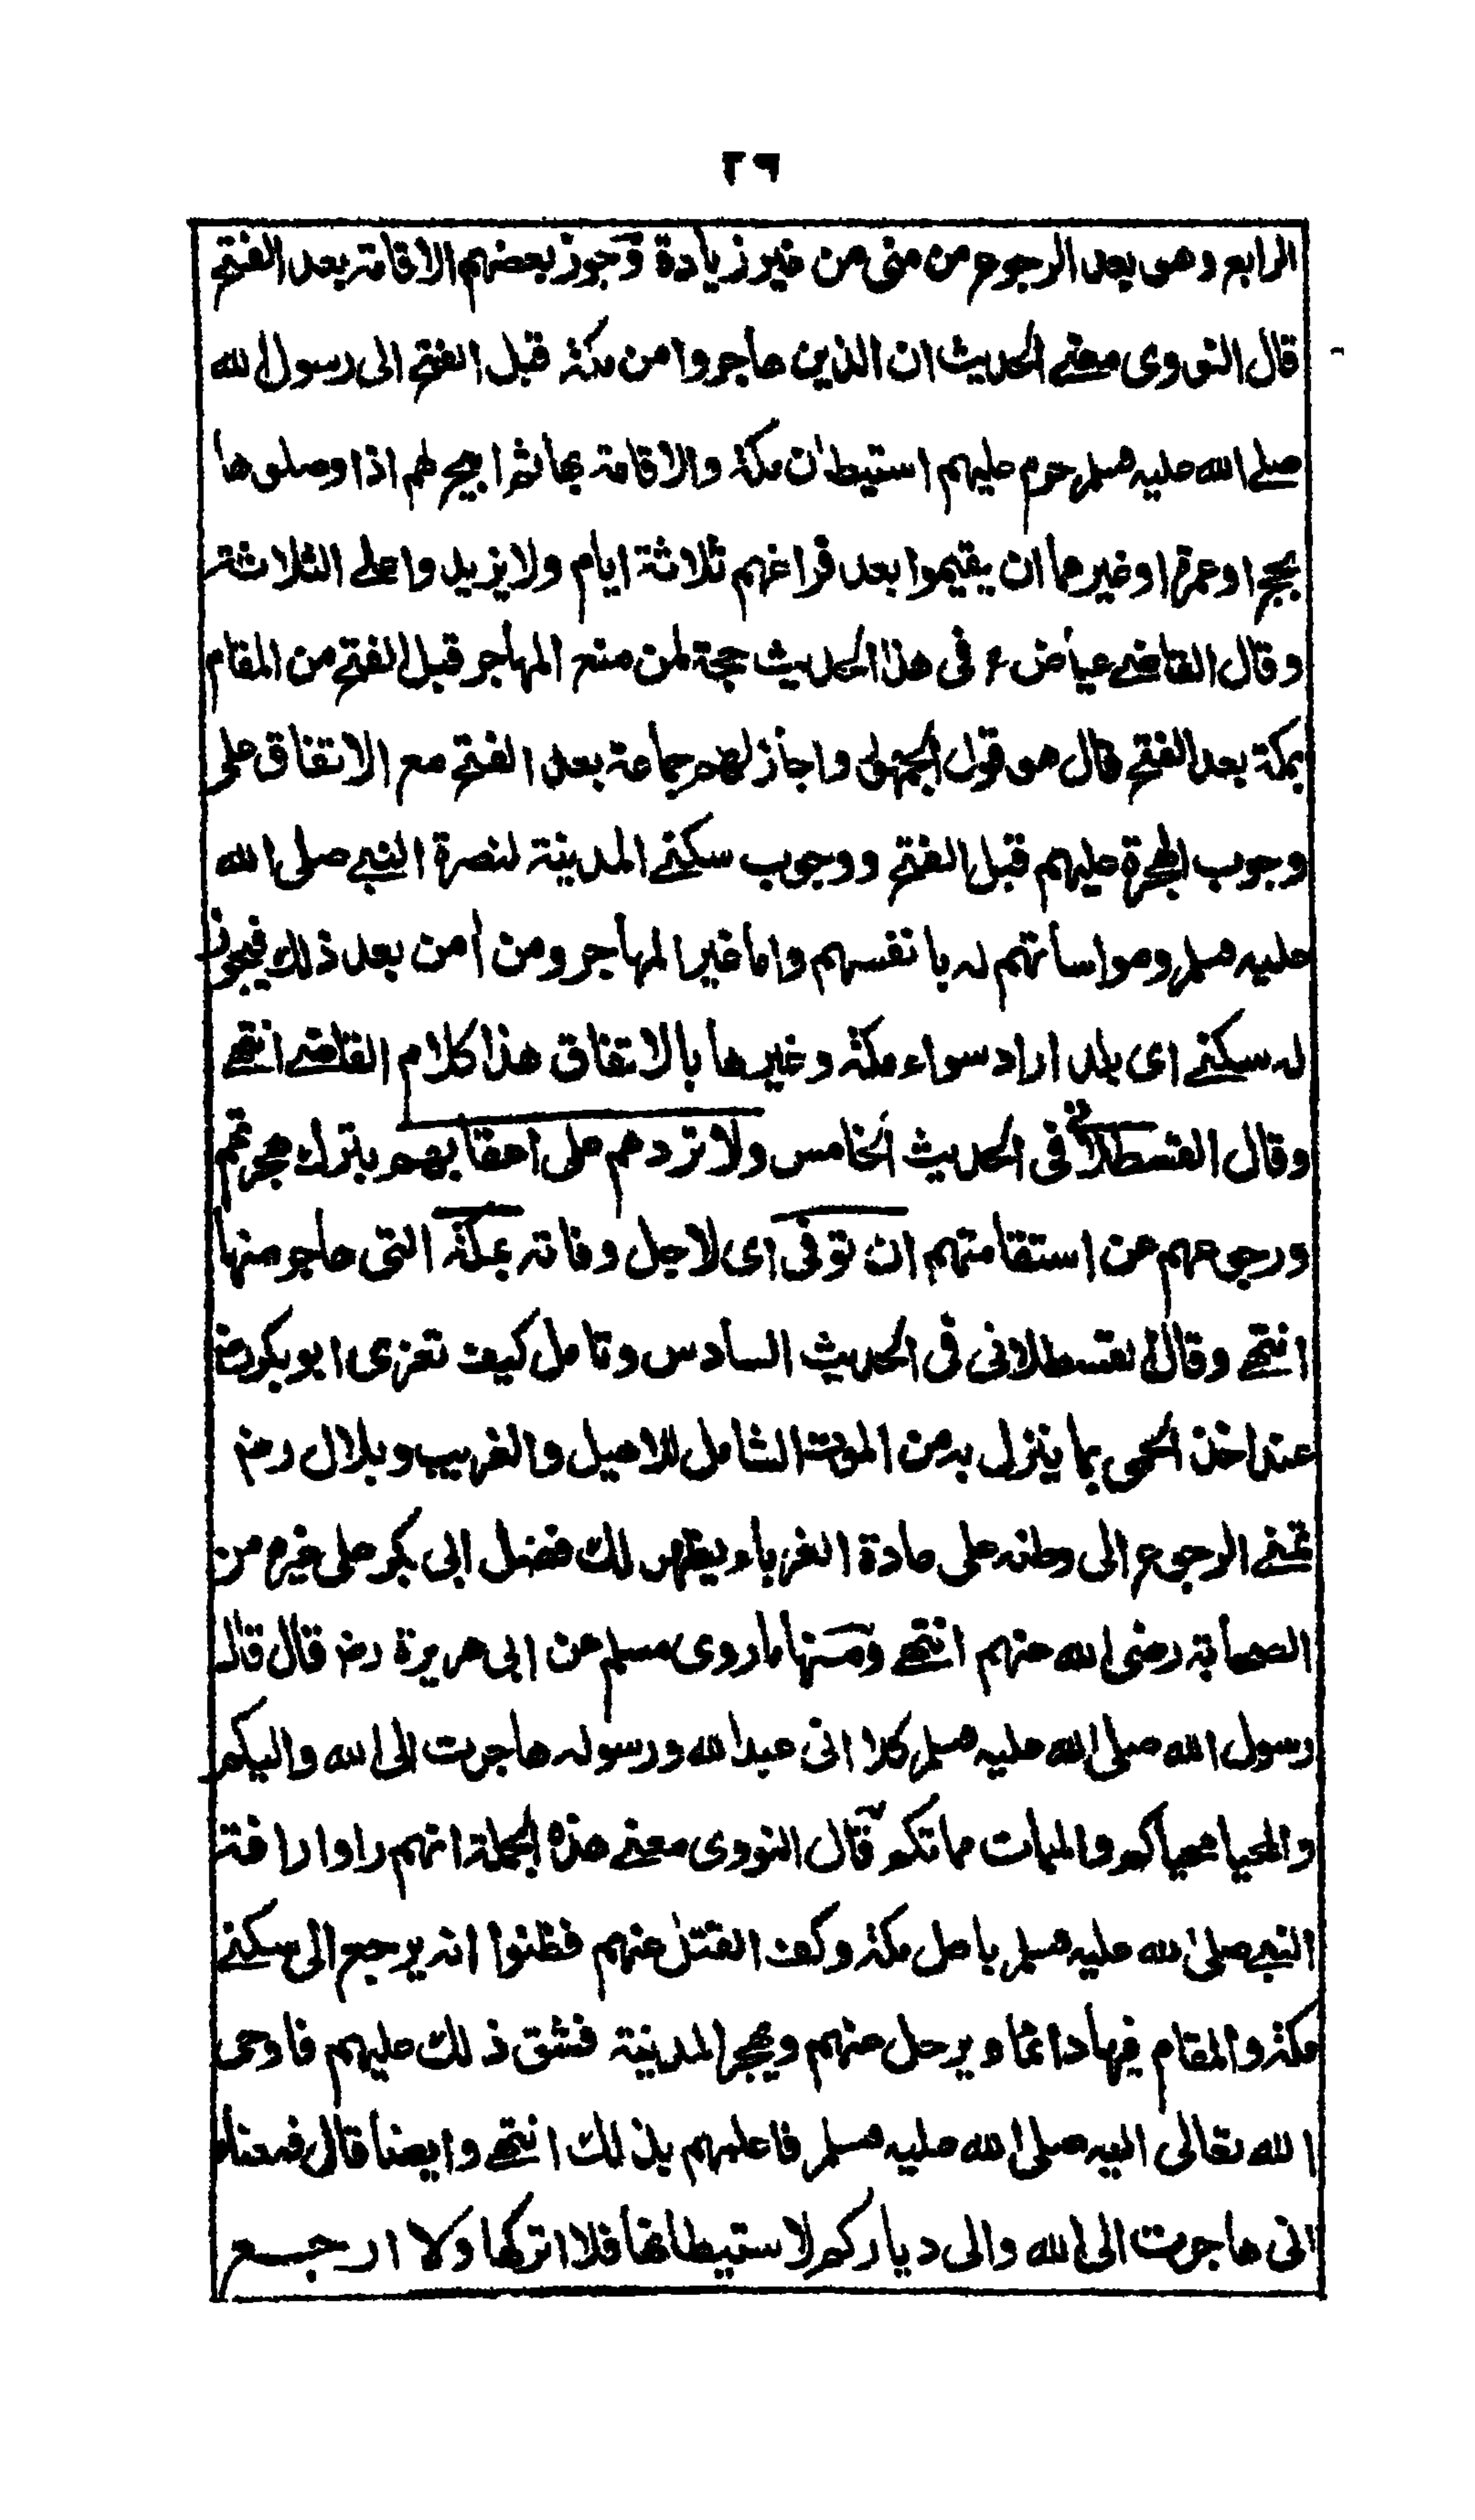 ٢٦
الرابع وهى بعد الرجوع من منى من غير زيادة وجوز بعضهم الاقامة بعد الفتح
قال النووى معنے الحديث ان الذين هاجروا من مكة قبل الفتح الى رسول الله
صلے الله عليه وسلم حرم عليهم استيطان مكة والاقامة بها ثم ابيح لهم اذا وصلوها
بحج او عمرة او غيرها ان يقيموا بعد فراغهم ثلاثة ايام ولا يزيدوا على الثلاثة
وقال القاضے عياض ع فى هذا الحديث حجة لمن منع المهاجر قبل الفتح من المقام
بمكة بعد الفتح قال هو قول الجمهور واجاز لهم جماعة بعد الفتح مع الاتفاق على
وجوب الهجرة عليهم قبل الفتح ووجوب سكنے المدينة لنصرة النبے صلى الله
عليه وسلم ومواساتهم له بانفسهم واما غير المهاجر ومن آمن بعد ذلك فيجوز
له سكنے اى بلد اراد سواء مكة وغيرها بالاتفاق هذا كلام القاضے انتهے
وقال القسطلانى فى الحديث الخامس ولا تردهم على اعقابهم بترك هجرتهم
ورجوعهم عن استقامتهم ان توفى اى لاجل وفاته بمكة التى هاجر منها
انتهے وقال القسطلانى فى الحديث السادس وتامل كيف تعزى ابو بكر رض
عند اخذ الحمى بما ينزل به من الموت الشامل للاهيل والغريب وبلال رض
تمنے الرجوع الى وطنه على عادة الغرباء يظهر لك فضل ابى بكر على غيره من
الصحابة رضى الله عنهم انتهے ومنها ما روى مسلم عن ابى هريرة رض قال قال
رسول الله صلى الله عليه وسلم كلا انى عبد الله ورسوله هاجرت الى الله واليكم
والمحيا محياكم والممات مماتكم قال النووى معنے هذه الجملة انهم راوا رافة
النبے صلى الله عليه وسلم باهل مكة وكف القتل عنهم فظنوا انه يرجع الى سكنے
مكة والمقام فيها دائما ويرحل عنهم ويهجر المدينة فشق ذلك عليهم فاوحى
الله تعالى اليه صلى الله عليه وسلم فاعلمهم بذلك انتهے وايضا قال فمعناه
انى هاجرت الى الله والى دياركم لاستيطانها فلا اتركها ولا ارجع